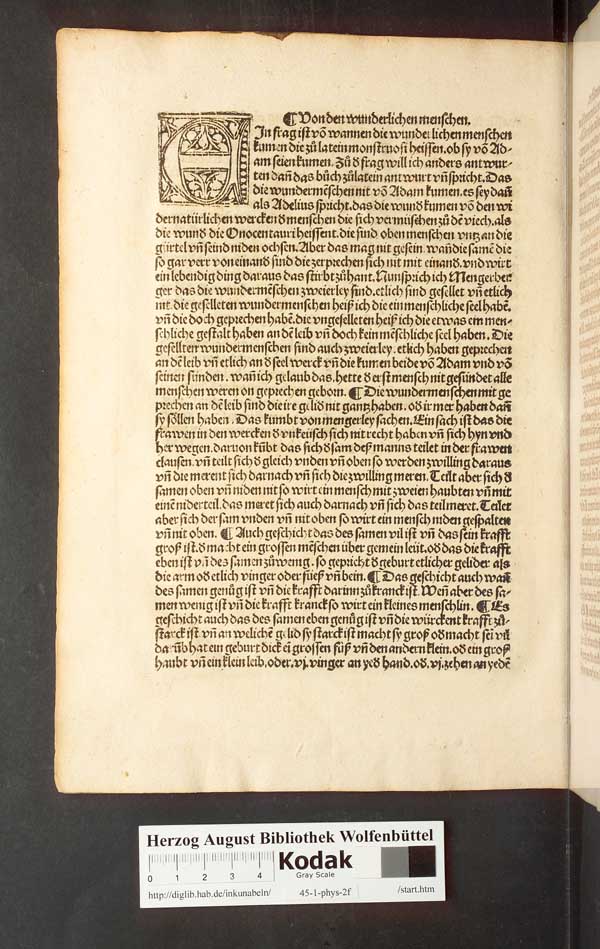 ¶ Von den wunderlichen menschen.
EIn frag ist võ wannen die wunderlichen menschen
kumen die zů latein monstruosi heissen. ob sy võ Ad-
am seien kumen. Zů d frag will ich anders antwur-
ten dañ das bůch zů latein antwurt vñ spricht. Das
die wundermẽschen nit võ Adam kumen. es sey dañ
als Adelius spricht. das die wund kumen võ den wi
dernatürlichen wercken d menschen die sich vermischen zů dẽ viech. als
die wund die Onocentauri heissent. die sind oben menschen vntz an die
gürtel vñ seind niden ochsen. Aber das mag nit gesein. wañ die samẽ die
so gar verr von einand sind die zerprechen sich nit mit einand. vnd wirt
ein lebendig ding daraus das stirbt zůhant. Nun sprich ich Mengerber
ger das die wundermẽschen zweierley sind. etlich sind gesellet vñ etlich
nit. die geselleten wundermenschen heiß ich die ein menschliche seel habẽ.
vñ die doch geprechen habẽ. die vngeselleten heiß ich die etwas em men-
schliche gestalt haben an dẽ leib vñ doch kein mẽschliche seel haben. Die
gesellten wundermenschen sind auch zweierley. etlich haben geprechen
an dẽ leib vñ etlich an d seel werck vñ die kumen beide võ Adam vnd võ
seinen sünden. wañ ich gelaub das. hette d erst mensch nit gesündet alle
menschen weren on geprechen geborn. ¶ Die wundermenschen mit ge
prechen an dẽ leib sind die ire gelid nit gantz haben. od ir mer haben dañ
sy söllen haben. Das kumbt von mengerley sachen. Ein sach ist das die
frawen in den wercken d vnkeüsch sich nit recht haben vñ sich hyn vnd
her wegen. daruon kũbt das sich d sam deß manns teilet in der frawen
clausen. vñ teilt sich d gleich vnden vñ oben so werden zwilling daraus
vñ die merent sich darnach vñ sich die zwilling meren. Teilt aber sich d
samen oben vñ niden nit so wirt ein mensch mit zweien haubten vñ mit
einẽ niderteil. das meret sich auch darnach vñ sich das teil meret. Teilet
aber sich der sam vnden vñ nit oben so wirt ein mensch niden gespalten
vñ nit oben. ¶ Auch geschicht das des samen vil ist vñ das sein krafft
groß ist. d macht ein grossen mẽschen über gemein leüt. od das die krafft
eben ist vñ des samen zů wenig. so gepricht d geburt etlicher gelider als
die arm od etlich vinger oder füeß vñ bein. ¶ Das geschicht auch wañ
des samen genůg ist vñ die krafft darinn zů kranck ist. Weñ aber des sa-
men wenig ist vñ die krafft kranck so wirt ein kleines menschlin. ¶ Es
geschicht auch das des samen eben genůg ist vñ die würckent krafft zů-
starck ist vñ an welichẽ gelid sy starck ist macht sy groß od macht sei vil
da vũb hat ein geburt dick eĩ grossen fůß vñ den andern klein. od ein groß
haubt vñ ein klein leib. oder. vj. vinger an yed hand. od. vj. zehen an yedẽ
Herzog August Bibliothek Wolfenbüttel
0 1 2 3 4
Kodak
Gray Scale
http://diglib.hab.de/inkunabeln/ 45-1-phys-2f /start.htm